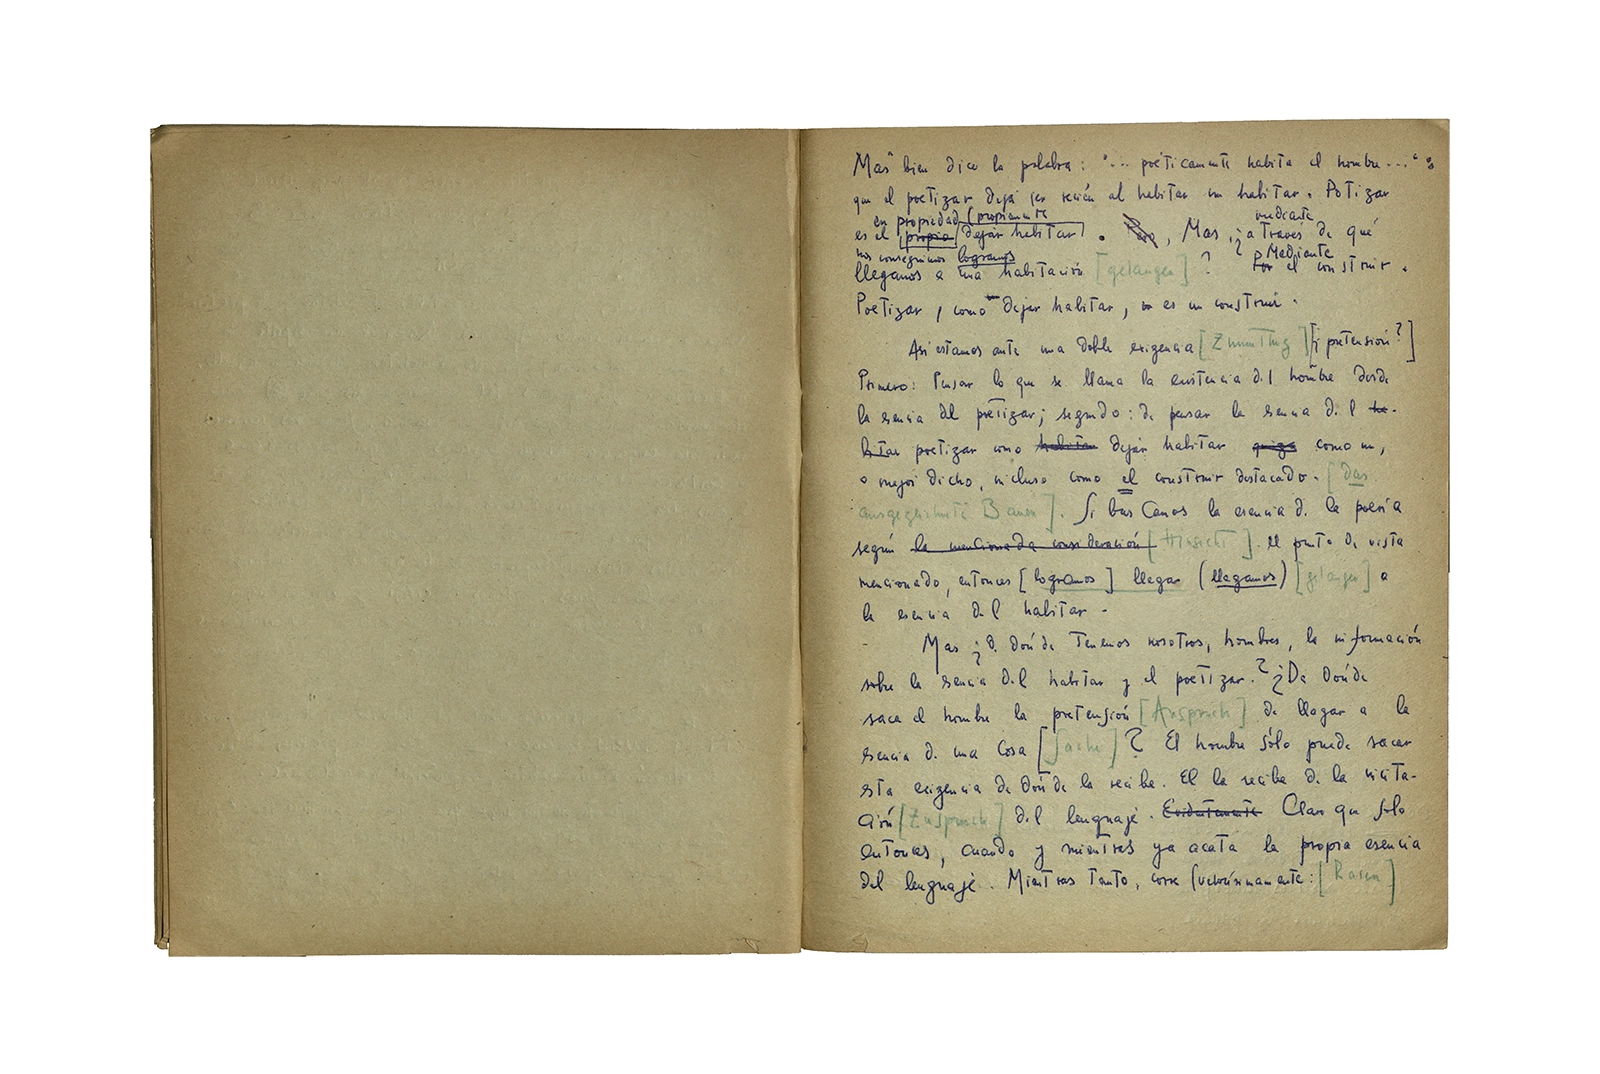 Mas bien dice la palabra: "... poéticamente habita el hombre..." :
que el poetizar deja ser recién al habitar un habitar. Potizar
en propiedad (propiamente mediante
es el (propio) dejar habitar). Pero, Mas, ¿a través de qué
nos conseguimos logramos Mediante
llegamos a una habitación [gelangen] ? Por el construir.
Poetizar, como dejar habitar, es un construir.
Asi estamos ante una doble exigencia [Zumutung] [¿pretensión?]
Primero: Pensar lo que se llama la existencia del hombre desde
la esencia del poetizar; segundo: de pensar la esencia del ha-
bitar poetizar como habitar dejar habitar quizá como un,
o mejor dicho, incluso como el construir destacado. [das
ausgezeichnete Bauen]. Si buscamos la esencia de la poesía
según la mencionada consideración [Hinsicht]. el punto de vista
mencionado, entonces [logramos] llegar (llegamos) [gelangen] a
la esencia del habitar.
Mas ¿de dónde tenemos nosotros, hombres, la información
sobre la esencia del habitar y el poetizar? ¿De dónde
saca el hombre la pretensión [Anspruch] de llegar a la
esencia de una cosa [Sache] ? El hombre sólo puede sacar
esta exigencia de dónde la recibe. El la recibe de la incita-
ción [Zuspruch] del lenguaje. Evidentemente Claro que solo
entonces, cuando y mientras ya acata la propia esencia
del lenguaje. Mientras tanto, corre (velocísimamente: [Rasen]